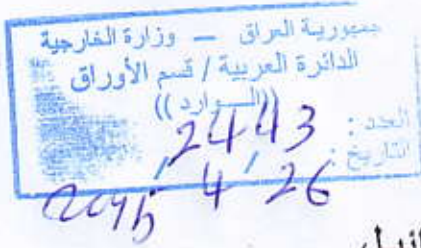 جمهورية العراق — وزارة الخارجية
الدائرة العربية / قسم الأوراق
((الـــوارد))
العدد: 2443
التاريخ: 26 / 4 /